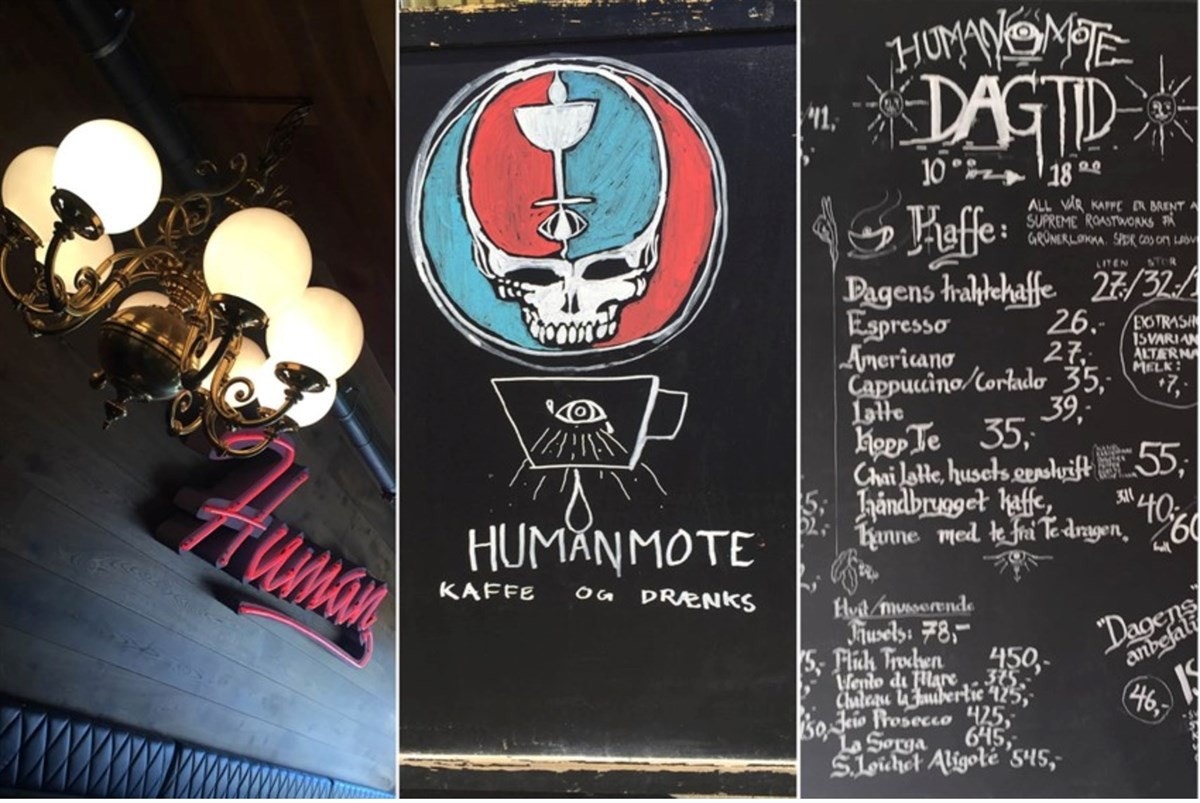 Human
HUMANMOTE
KAFFE OG DRÆNKS
HUMANMOTE
DAGTID
10⁰⁰ 18⁰⁰
Kaffe:
ALL VÅR KAFFE ER BRENT A
SUPREME ROASTWORKS PÅ
GRÜNERLØKKA. SPØR OSS OM
LITEN STOR
Dagens traktekaffe 27,-/32,-
Espresso 26,-
Americano 27,-
Cappuccino/Cortado 35,-
Latte 39,-
Kopp Te 35,-
Chai Latte, husets oppskrift 55,-
Håndbrygget kaffe, 3dl 40,-
Kanne med te fra Te-dragen. 60
EKSTRASH
ISVARIAN
ALTERNA
MELK:
+7,-
Hvit/musserende
Husets: 78,-
Flick Trocken 450,-
Vento di Mare 375,-
Chateau la Jaubertie 425,-
Jeio Prosecco 425,-
La Sorga 645,-
S. Loichet Aligoté 545,-
"Dagens
anbefali
46,-